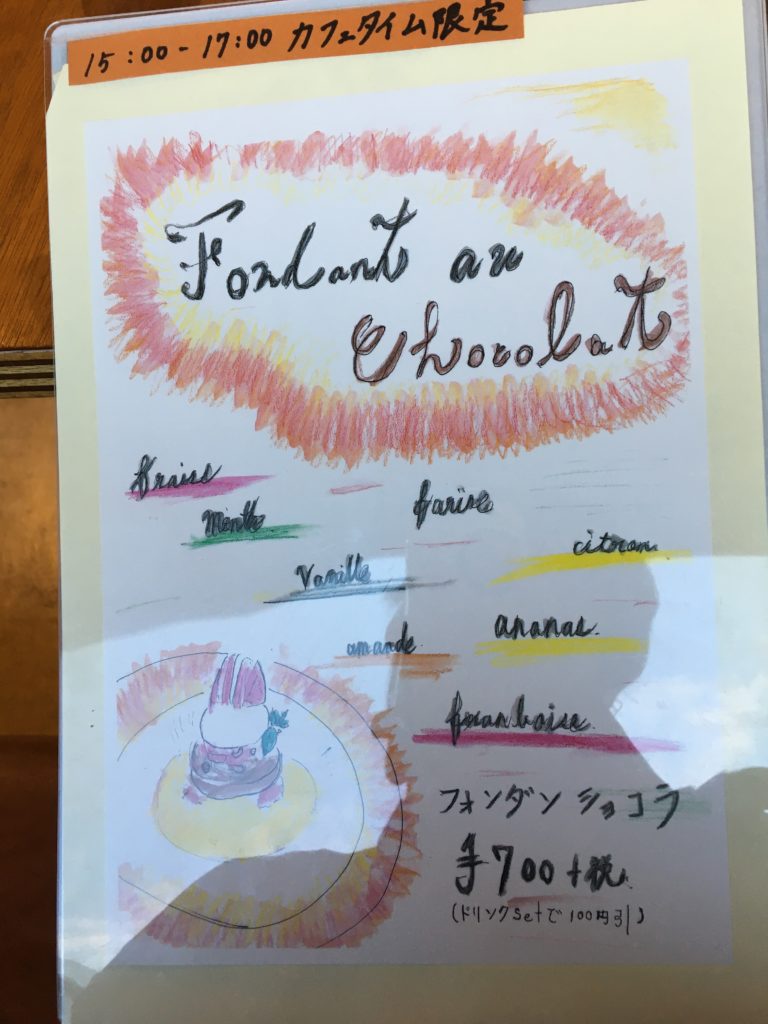 15:00-17:00 カフェタイム限定
Fondant au
Chocolat
fraise
menthe
farine
citoron
Vanille
ananas.
amande
franboise.
フォンダンショコラ
¥700+税
(ドリンクsetで100円引)